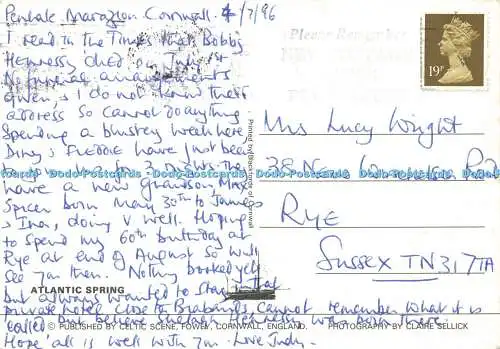 Penhale Marazion Cornwall. 4/7/96
I read in the Times that Bobby
Hennessy died on July 1st
No funeral arrangements
given, & I do not know their
address so cannot do anything.
Spending a blustery week here
& Freddie have just been
to 3 nights. We
have a new Grandson Max
Spicer born May 30th to James
& Ina, doing v well. Hoping
to spend my 60th birthday at
Rye at end of August so will
see you then. Nothing booked yet
but always wanted to stay in that
private hotel close to Brabmins, cannot remember what it is
called but believe Shelagh Hennessy was born there.
Hope all is well with you. Love Judy.
Please Remember
19P
Mrs Lucy Wright
38 New Winchelsea Rd
RYE
SUSSEX TN31 7TA
Printed and
ATLANTIC SPRING
© PUBLISHED BY CELTIC SCENE, FOWEY, CORNWALL, ENGLAND. PHOTOGRAPHY BY CLAIRE SELLICK
Dodo-Postcards Dodo-Postcards Dodo-Postcards Dodo-Postcards